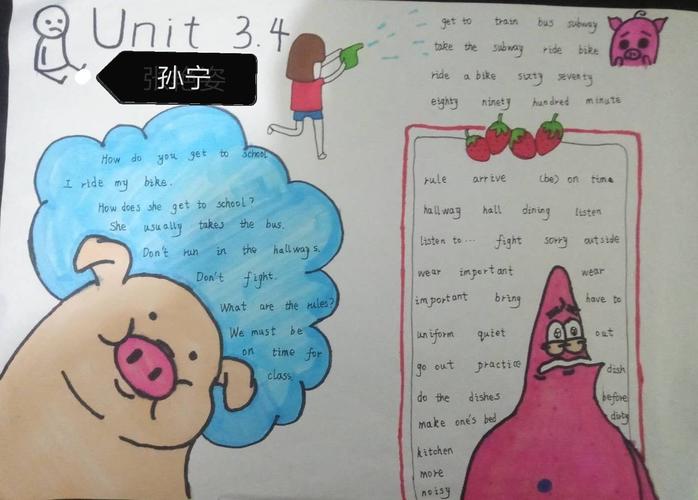 Unit 3.4
孙宁
get to train bus subway
take the subway ride bike
ride a bike sixty seventy
eighty ninety hundred minute
How do you get to school
I ride my bike.
How does she get to school?
She usually takes the bus.
Don't run in the hallways.
Don't fight.
What are the rules?
We must be
on time for
class
rule arrive (be) on time
hallway hall dining listen
listen to... fight sorry outside
wear important wear
important bring have to
uniform quiet out
go out practice dish
do the dishes before
make one's bed dirty
kitchen
more
noisy